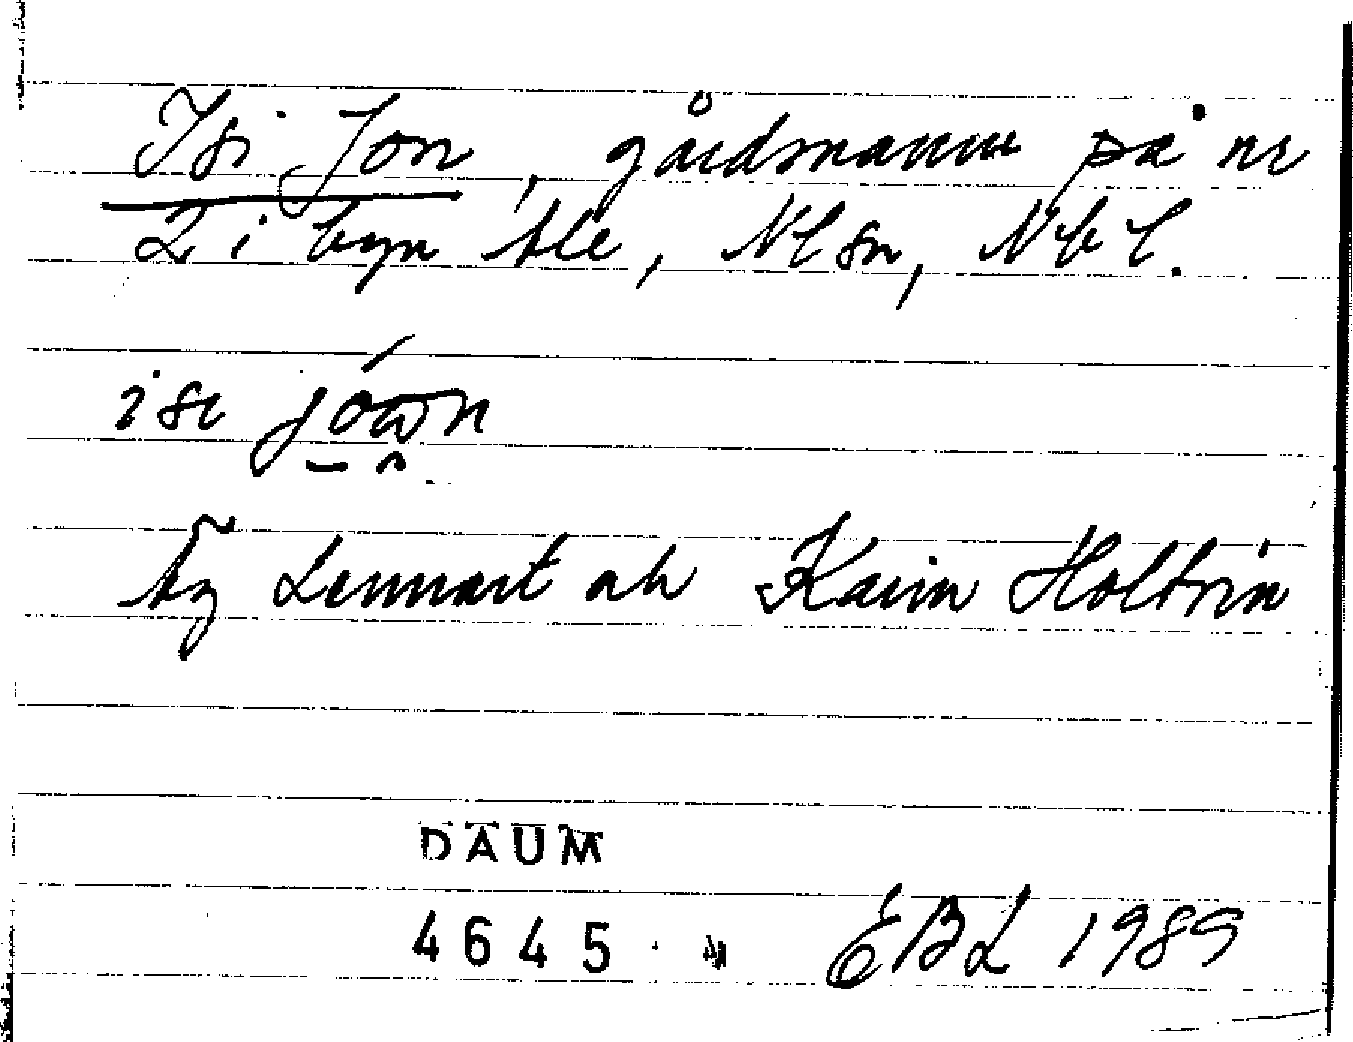 Isi Jon, gårdmannen på nr
2 i byn Ale, Nlsn, Nbl.
isi jóan
Lennart och Karin Holtrin
DAUM
4645 EBL 1989